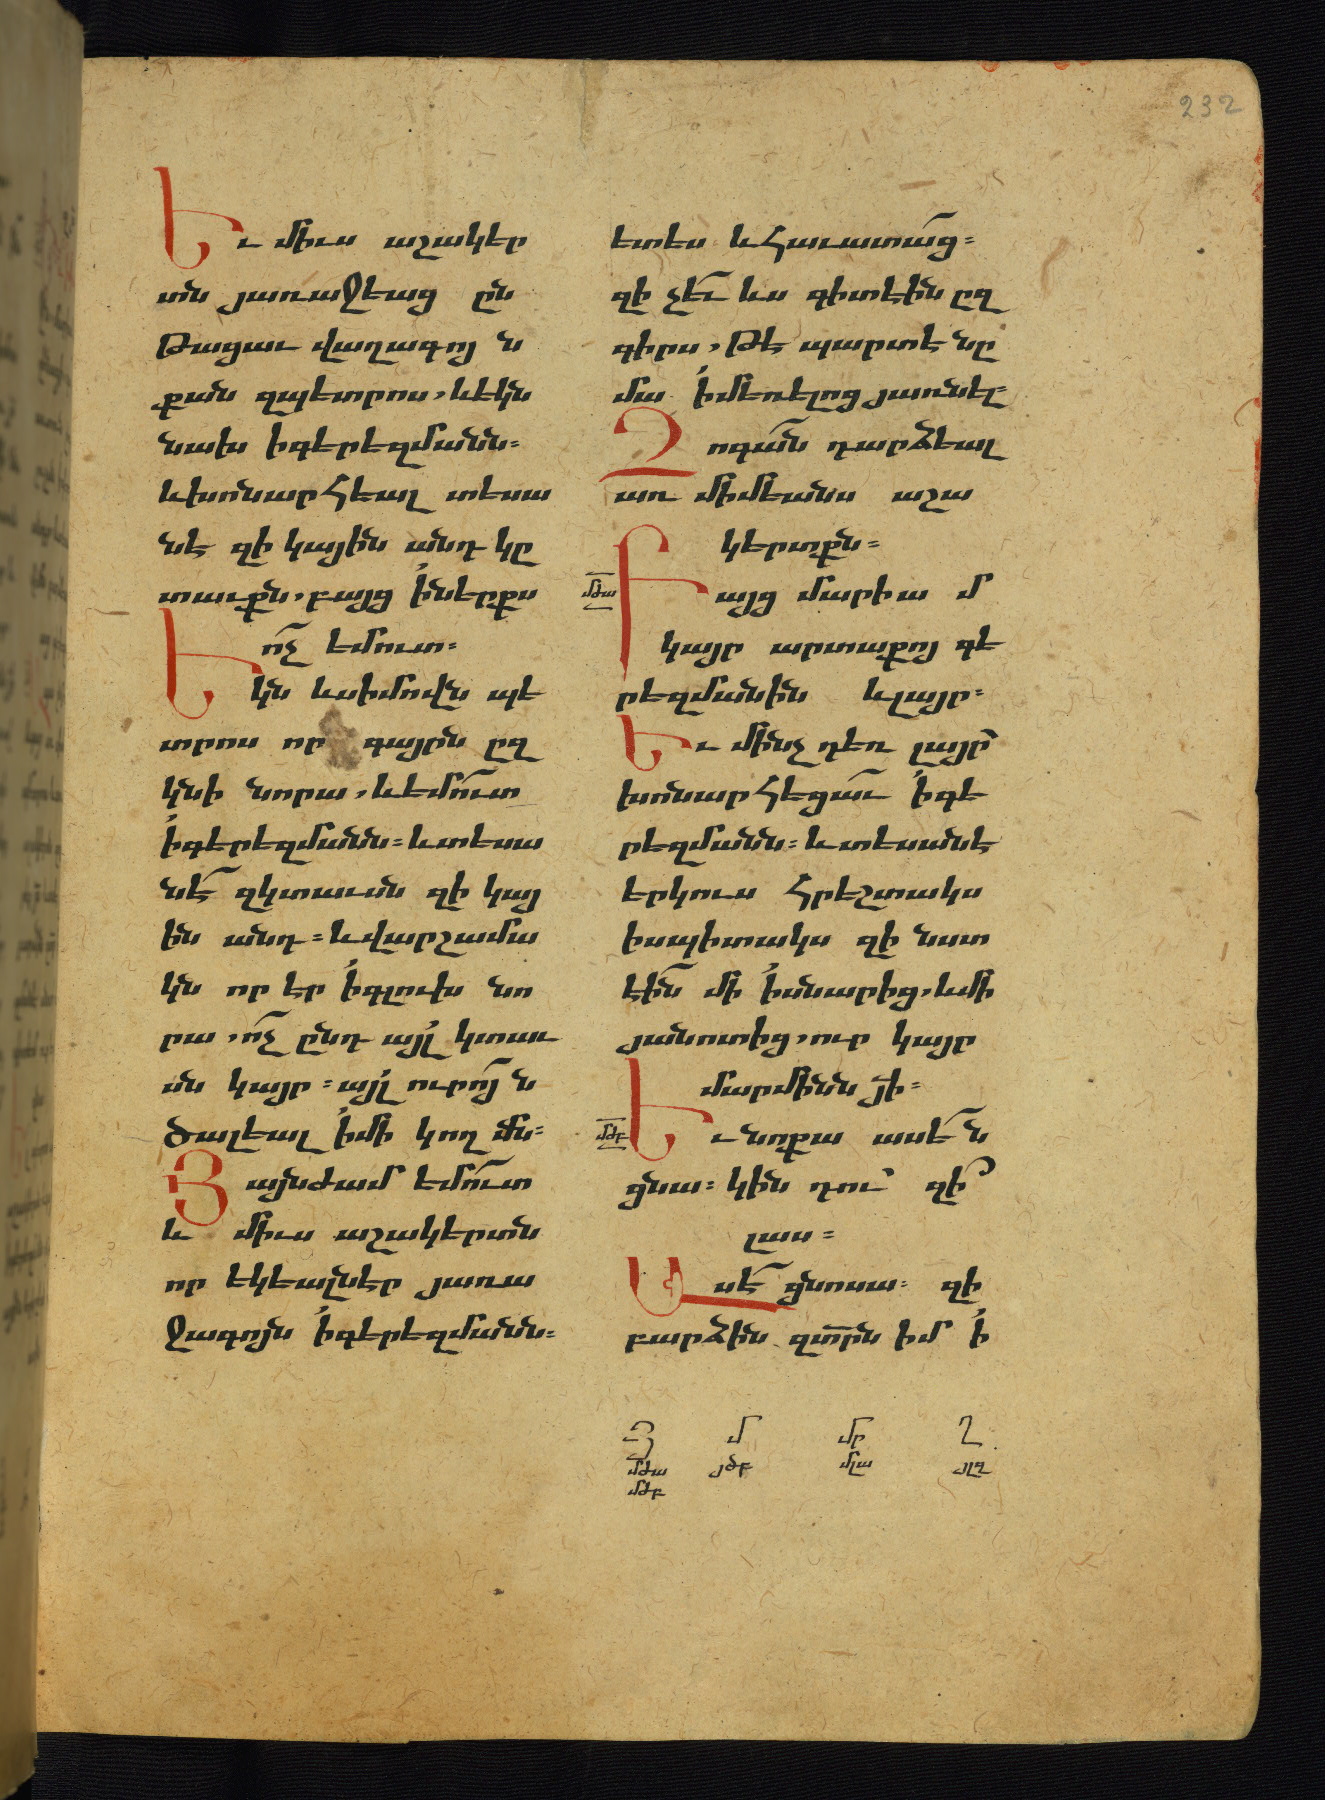 232
Եւ միւս աշակեր
տն յառաջեաց ըն
թացաւ վաղագոյն
քան զպետրոս, և եկն
նախ ի գերեզմանն։
և խոնարհեալ տեսա
նէ զի կային անդ կը
տաւքն, բայց ի ներքս
ոչ եմուտ։
Եկն և սիմովն պե
տրոս որ գայրն ըզ
կնի նորա, և եմուտ
ի գերեզմանն։ և տեսա
նէ զկտաւսն զի կայ
ին անդ։ և վարշամա
կն որ էր ի գլուխ նո
րա, ոչ ընդ այլ կտաւ
սն կայր։ այլ ուրոյն
ծալեալ ի մի կողմն։
Յայնժամ եմուտ
և միւս աշակերտն
որ եկեալն էր յառա
ջագոյն ի գերեզմանն։
ետես և հաւատաց։
զի չև ևս գիտէին ըզ
գիրս, թէ պարտէ նը
մա ի մեռելոց յառնել։
Չոգան դարձեալ
առ միմեանս աշա
կերտքն։
մծա
Բայց մարիամ
կայր արտաքոյ գե
րեզմանին և լայր։
Եւ մինչ դեռ լայր
խոնարհեցաւ ի գե
րեզմանն։ և տեսանէ
երկուս հրեշտակս
ի սպիտակս զի նստ
էին մի ի սնարից, և մի
յանոտից, ուր կայր
մարմինն յի։
մծբ
Եւ նոքա ասեն
ցնա։ կին դու զի
լաս։
Ասէ ցնոսա։ զի
բարձին զտրն իմ ի
Յ մ մր ղ
մծա յծբ մլա յլզ
մծբ